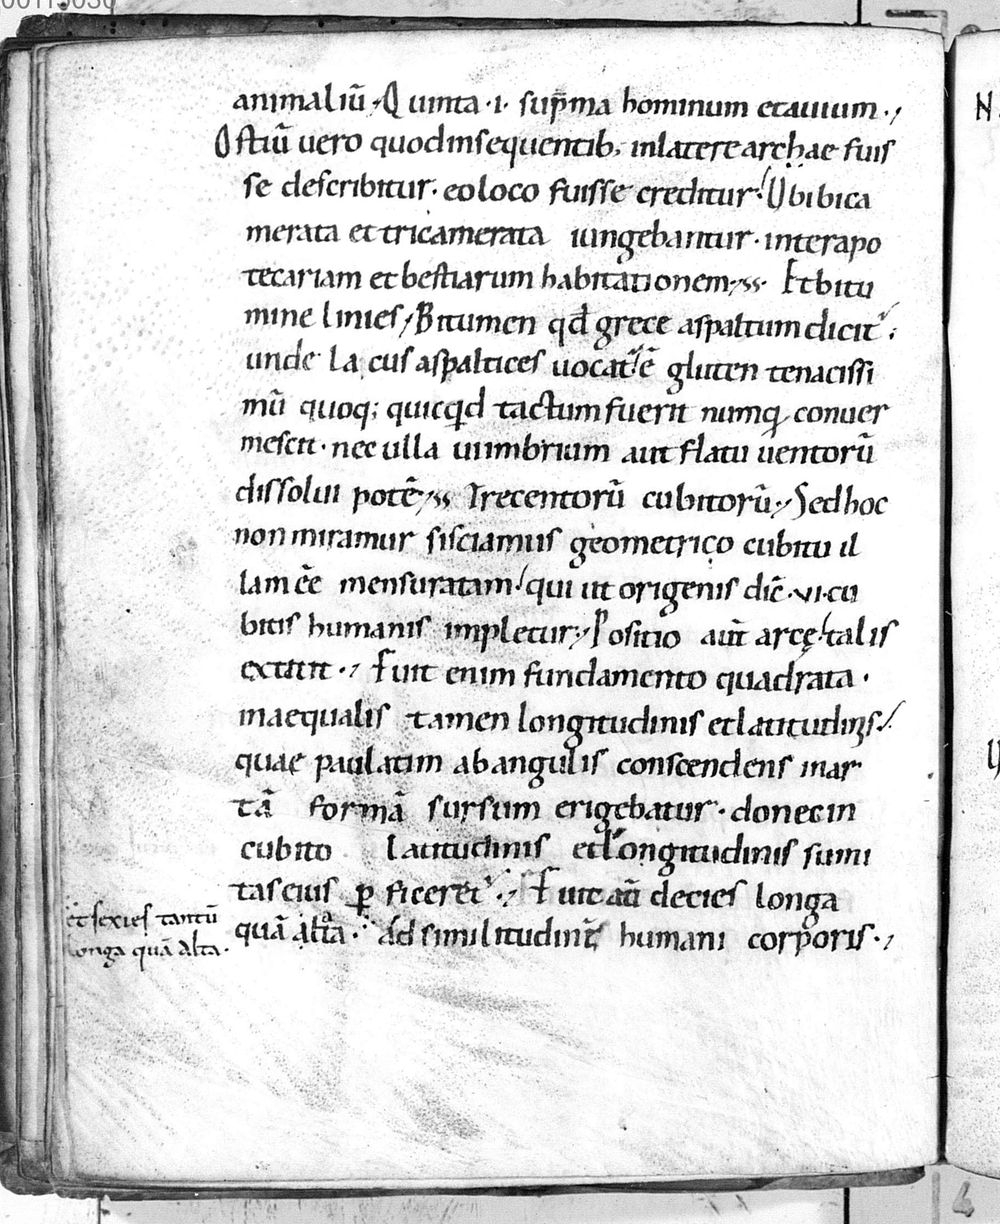 animaliū. Quinta .i. sup̄ma hominum et auium.
Ostiū uero quod insequentib; in latere archae fuis
se describitur. eo loco fuisse creditur. Ubi bica
merata et tricamerata iungebantur. inter apo
tecariam et bestiarum habitationem. Et bitu
mine linies. Bitumen qđ grece aspaltum dicit̄.
unde lacus aspaltices uocat̄ ē gluten tenacissi
mū quoq; quicq̄d tactum fuerit numq̄ conuer
mescit. nec ulla ui imbrium aut flatu uentorū
dissolui potē. Trecentorū cubitorū. Sed hoc
non miramur si sciamus geometrico cubitu il
lam ēe mensuratam. qui ut origenis dic̄ .vi. cu
bitis humanis impletur. Positio aut̄ arcę talis
extitit. Fuit enim fundamento quadrata.
inaequalis tamen longitudinis et latitudinis.
quae paulatim ab angulis conscendens in ar
tā formā sursum erigebatur. donec in
cubito latitudinis et longitudinis sumi
tas eius ꝑ ficeret̄. Fuit aū decies longa
quā alta. Ad similitudinē humani corporis.
et sexies tantū
longa quā alta.